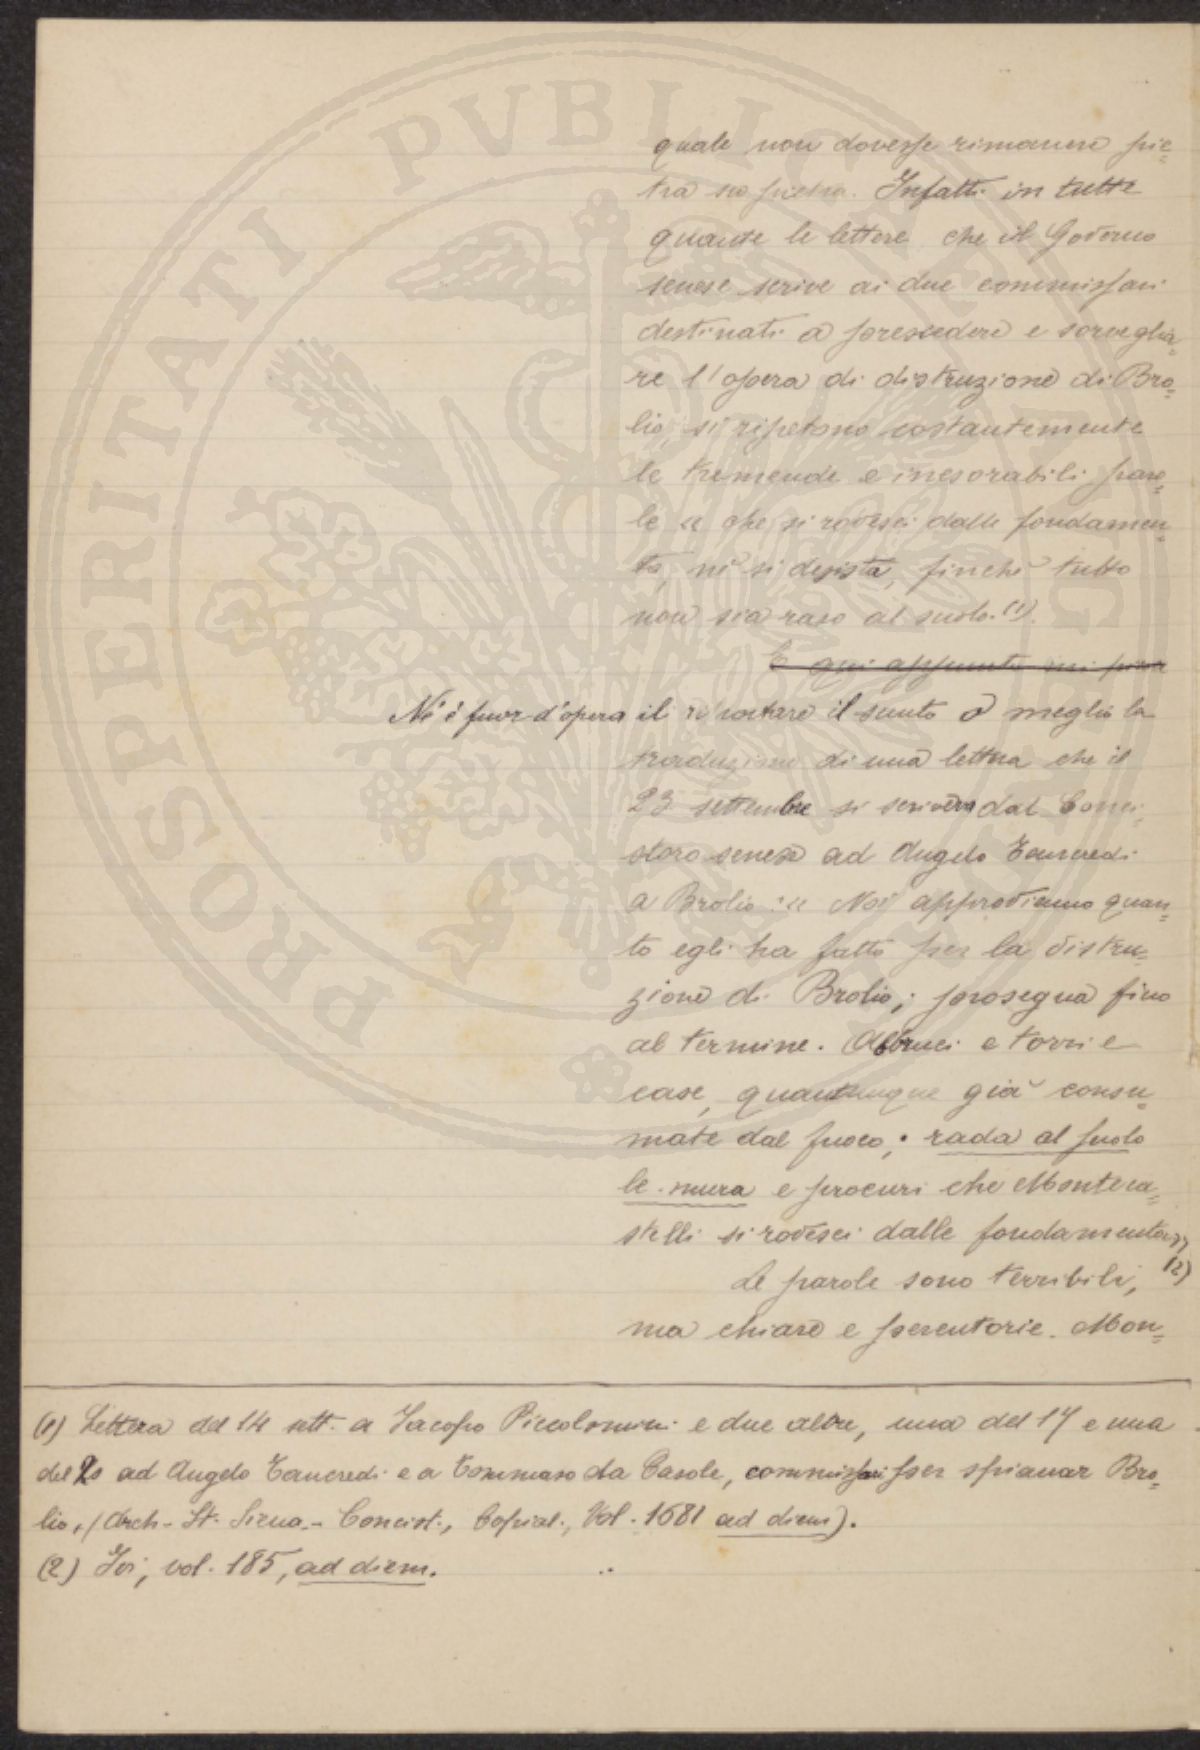 quale non dovesse rimanere pie=
tra su pietra. Infatti in tutte
quante le lettere che il Governo
senese scrive ai due commissari
destinati a presiedere e sorveglia=
re l'opera di distruzione di Bro=
lio, si ripetono costantemente
le tremende e inesorabili paro=
le « che si rovesci dalle fondamen=
ta, nè si desista, finchè tutto
non sia raso al suolo. (1).
E qui appunto mi piace
Nè è fuor d'opera il riportare il sunto o meglio la
traduzione di una lettera che il
23 settembre si scriveva dal Conci=
storo senese ad Angelo Tancredi
a Brolio: « Noi approviamo quan=
to egli ha fatto per la distru=
zione di Brolio; prosegua fino
al termine. Abbruci e torri e
case, quantunque già consu=
mate dal fuoco; rada al suolo
le mura e procuri che Monteca=
stelli si rovesci dalle fondamenta »
(2)
Le parole sono terribili,
ma chiare e perentorie. Mon=
(1) Lettera del 14 sett. a Jacopo Piccolomini e due altre, una del 17 e una
del 20 ad Angelo Tancredi e a Tommaso da Casole, commissari per spianar Bro=
lio, (Arch. St. Siena - Concist., Copial., Vol. 1681 ad diem).
(2) Ivi, vol. 185, ad diem.
PROSPERITATI PUBLICAE